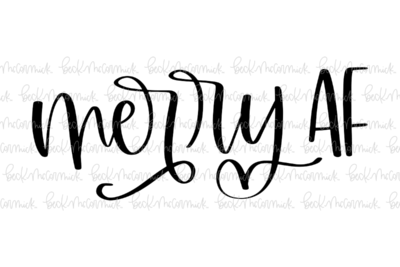 merry AF